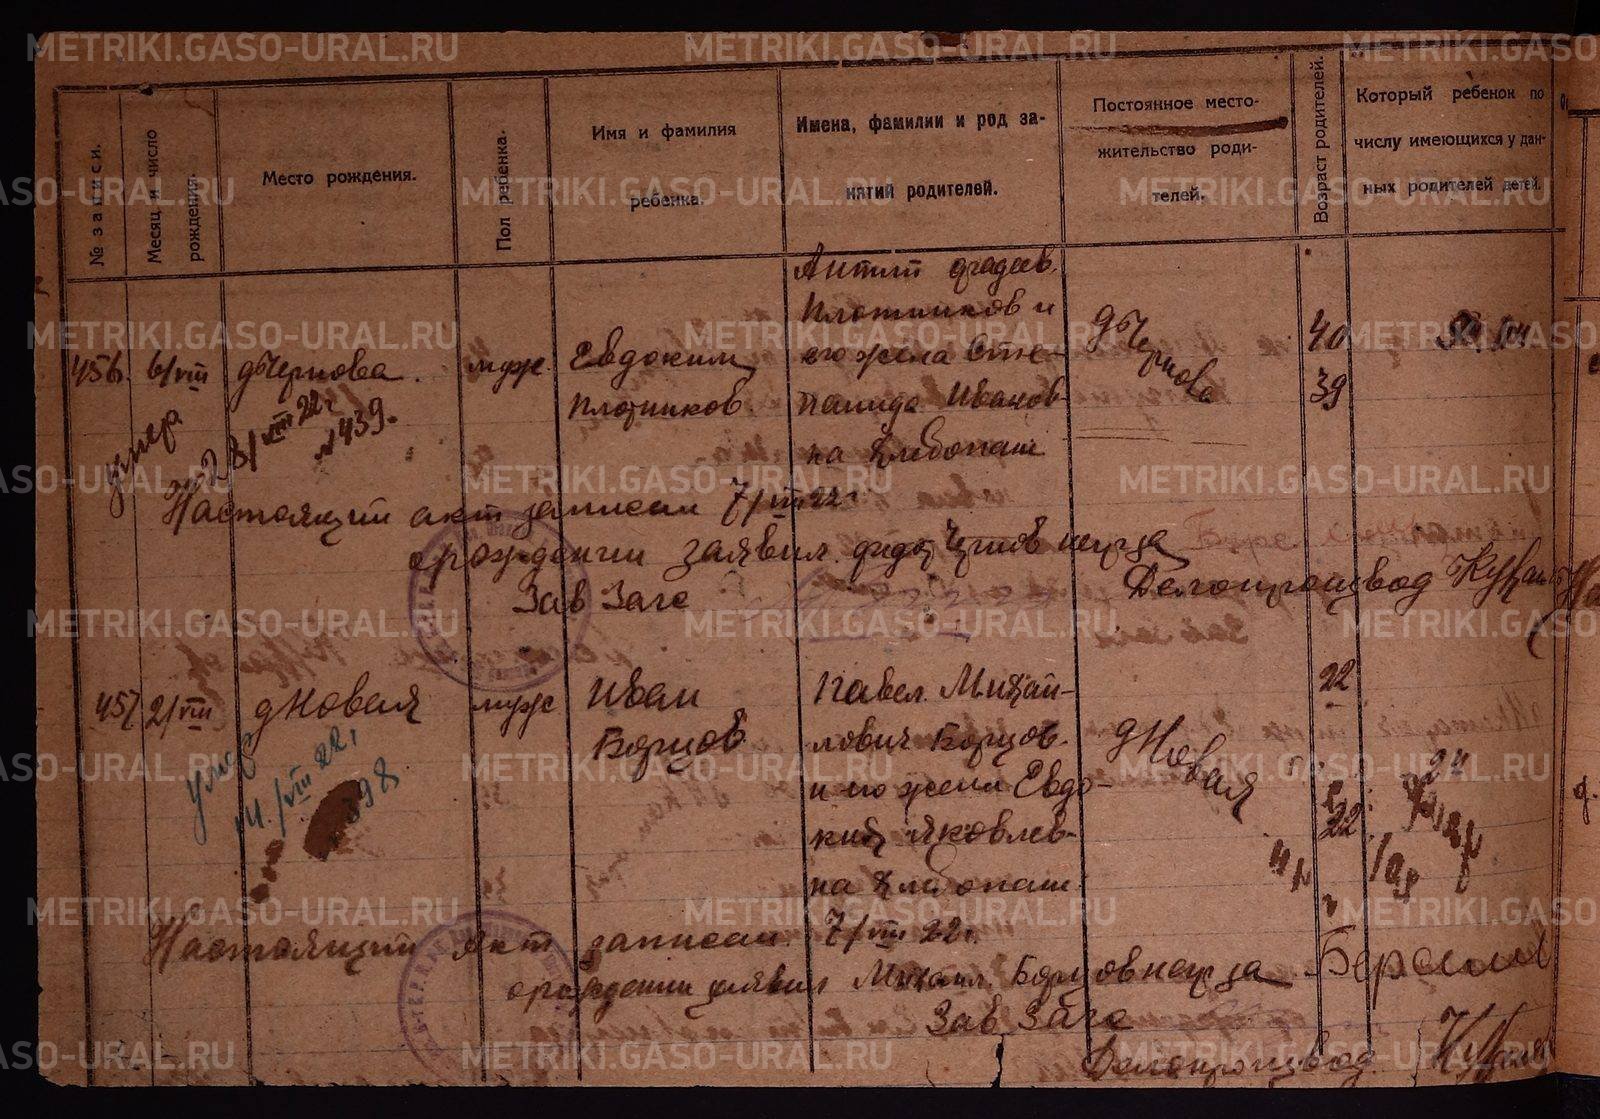 № записи.
Месяц и число рождения.
Место рождения.
Пол ребенка.
Имя и фамилия
ребенка.
Имена, фамилии и род за-
нятий родителей.
Постоянное место-
жительство роди-
телей.
Возраст родителей.
Который ребенок по
числу имеющихся у дан-
ных родителей детей.
456.
6/VIII
д Чернова.
муж.
Евдоким
Плотников.
Антип Фадеев.
Плотников и
его жена Сте-
панида Иванов-
на Хлебопаш
д Чернова
40
39
умер
28/VIII 22 г
№ 439.
Настоящий акт записан 7/VIII 22 г
о рождении заявил
Зав Загс
Делопроизвод
457
2/VIII
д Новая
муж
Иван
Борцов
Павел Михай-
лович Борцов
и его жена Евдо-
кия Яковлев-
на Хлебопаш.
д Новая
22
22
умер
14/VIII 22 г
№ 398
Настоящий акт записан 7/VIII 22 г.
о рождении заявил Михаил Борцов
Зав Загс
Делопроизвод
METRIKI.GASO-URAL.RU